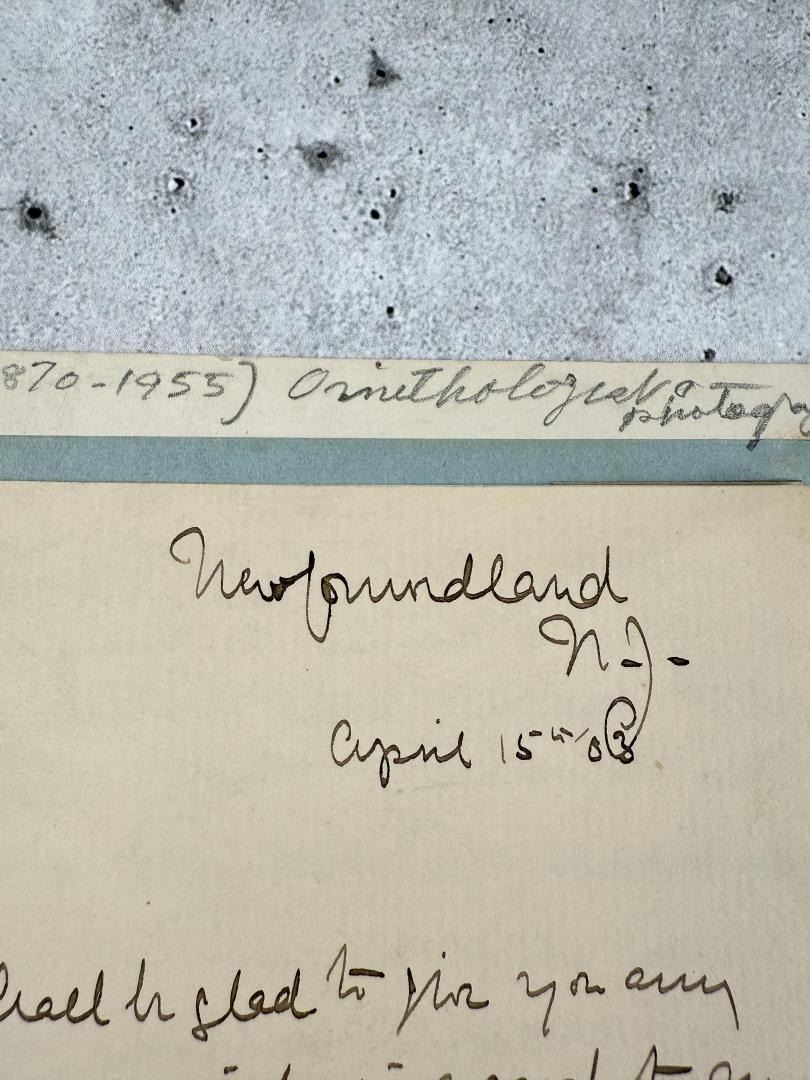 870-1955) Ornethologist &
photogra
Newfoundland
N-J-
April 15th/03
hall be glad to give you any